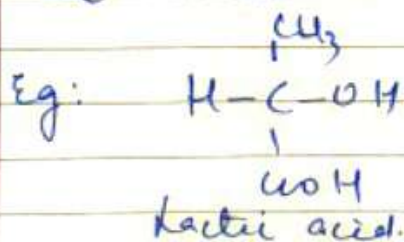 CH3
Eg: H-C-OH
COOH
Lactic acid.